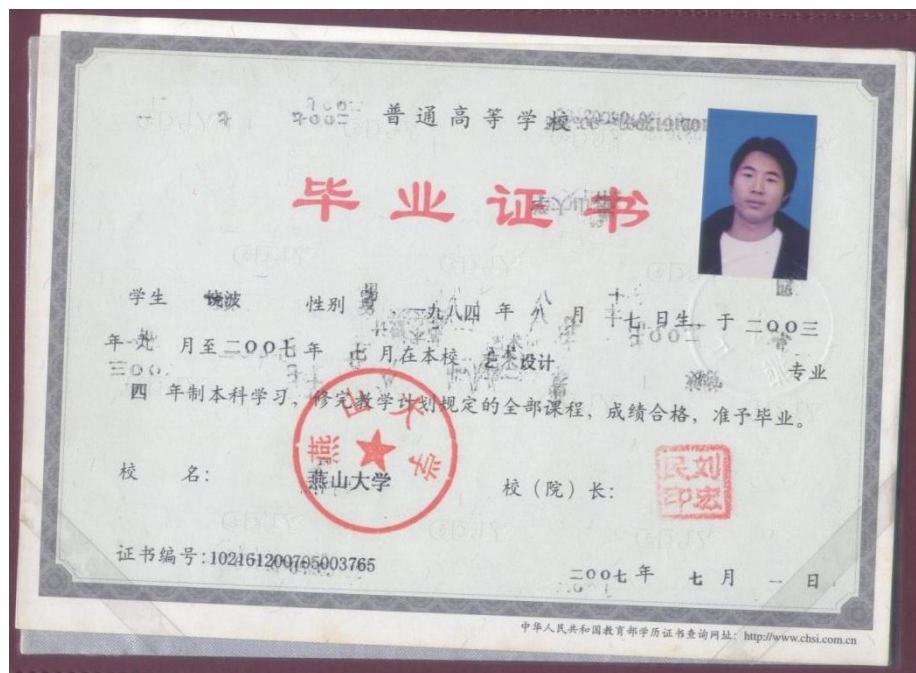 普通高等学校
毕业证书
学生 饶波 性别 男 一九八四 年 八 月 十七 日生，于 二00三
年 九 月至 二00七 年 七 月在本校 艺术设计 专业
四 年制本科学习，修完教学计划规定的全部课程，成绩合格，准予毕业。
燕山大学
校 名： 燕山大学 校（院）长： 刘宏民印
证书编号：102161200705003765
二00七 年 七 月 一 日
中华人民共和国教育部学历证书查询网址：http://www.chsi.com.cn